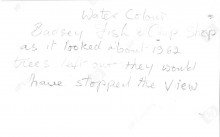 Water Colour
Bansey Fish & Chip Shop
as it looked about 1962
trees left out they would
have stopped the view